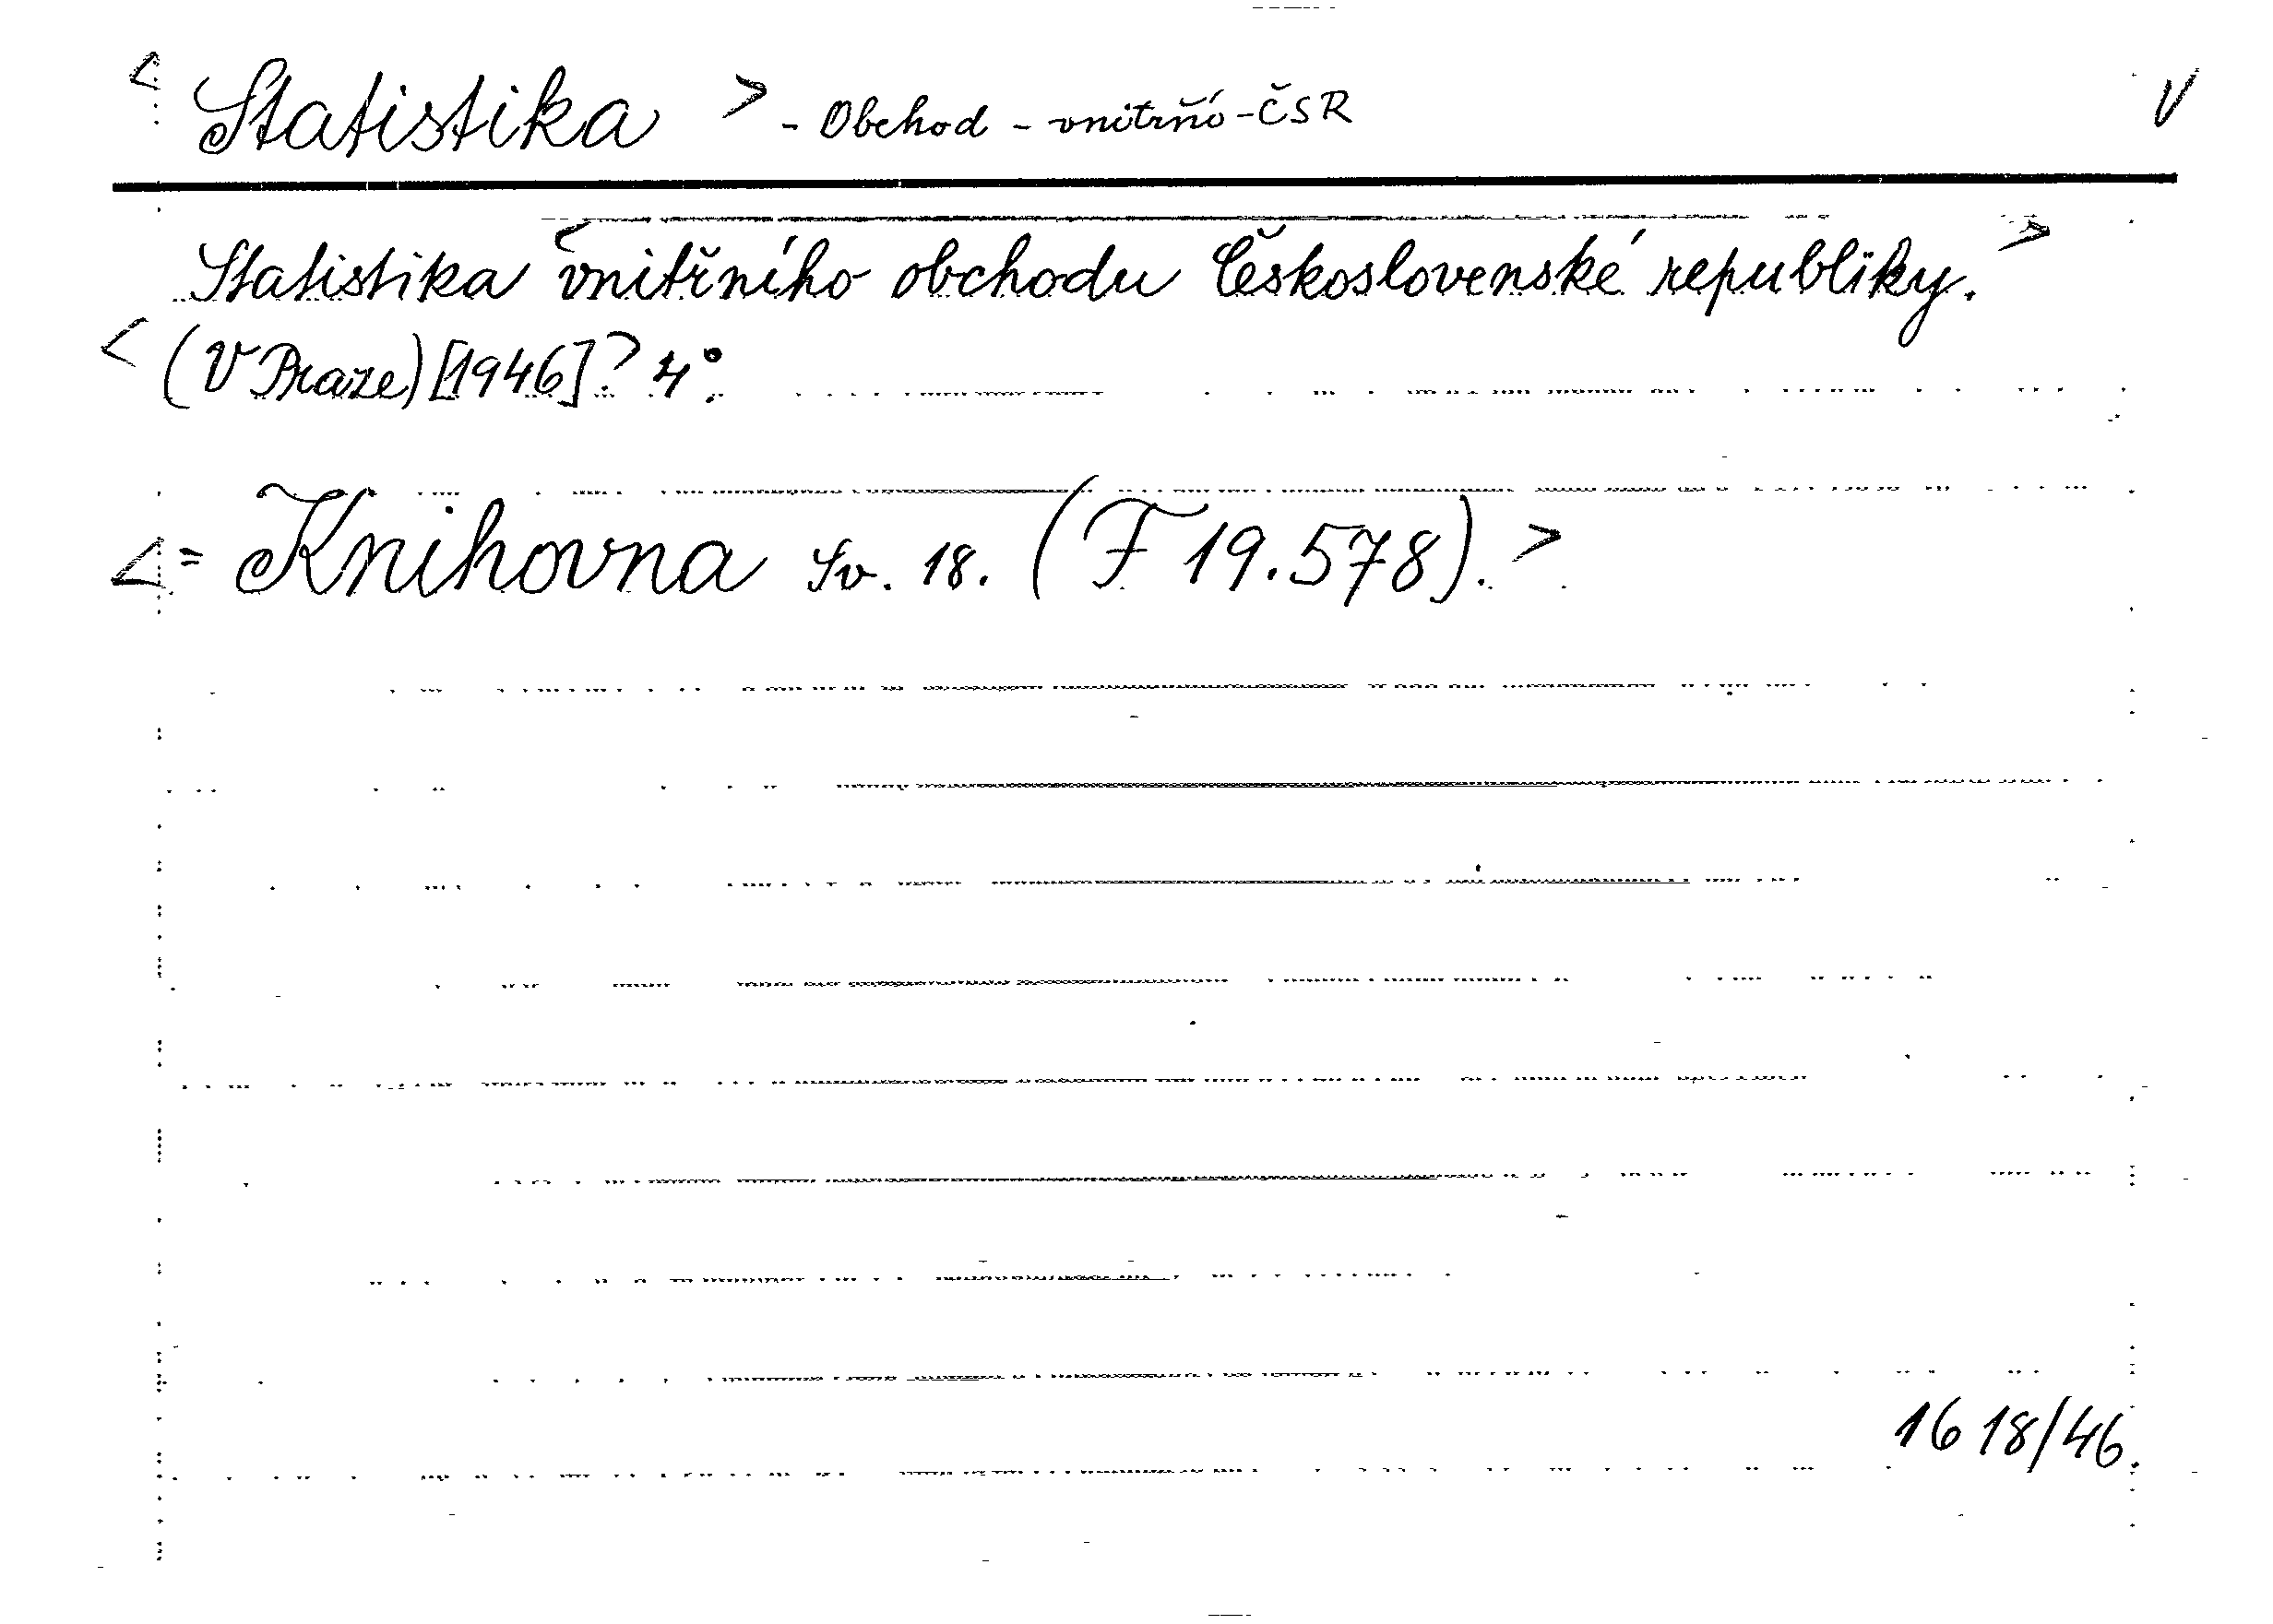 < Statistika > - Obchod - vnitřní - ČSR V
Statistika < vnitřního obchodu Československé republiky. >
< (V Praze) [1946]. > 4°.
< = Knihovna Sv. 18. (F 19.578). >
1618/46.